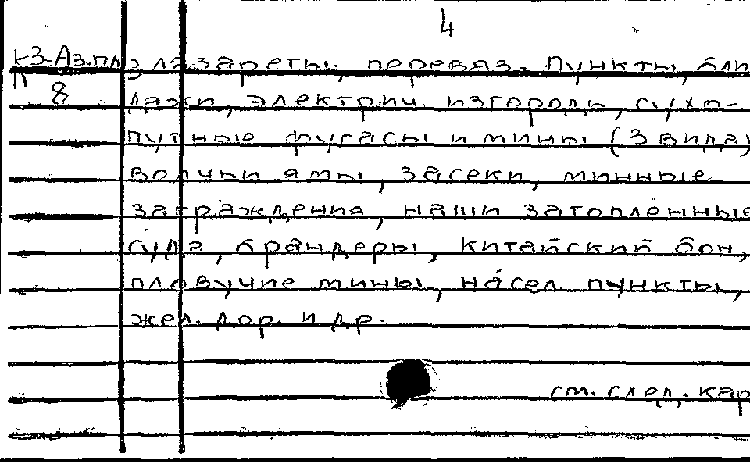 4
К-3-Аз.пл лазареты, перевяз. пункты, бли
8
дажи, электрич. изгородь, сухо-
путные фугасы и мины (3 вида)
волчьи ямы, засеки, минные
заграждения, наши затопленные
суда, брандеры, китайский бон,
пловучие мины, насел. пункты,
жел. дор. и др.
см. след. кар